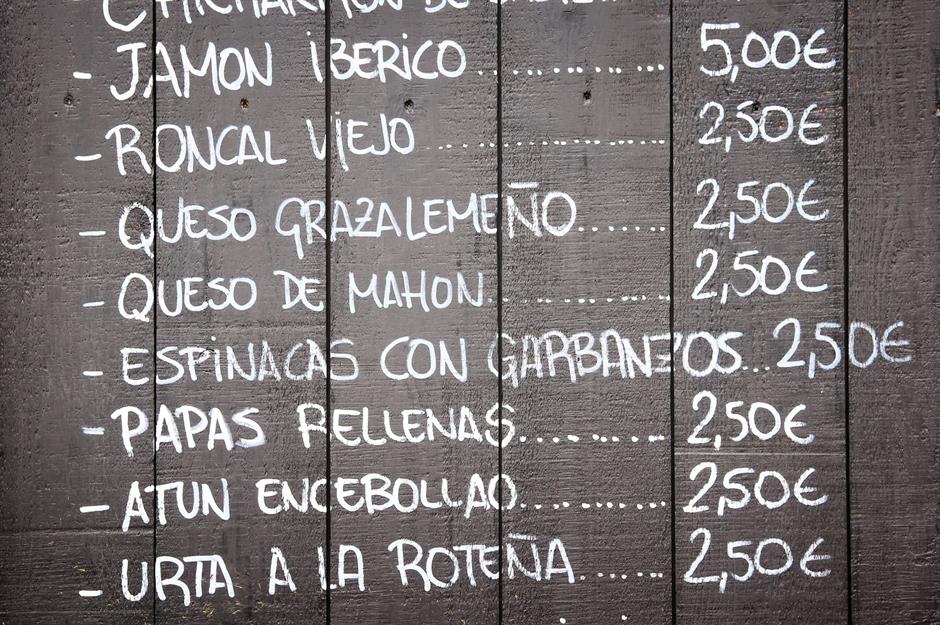 - JAMON IBERICO............ 5,00€
- RONCAL VIEJO ............ 2,50€
- QUESO GRAZALEMEÑO....... 2,50€
- QUESO DE MAHON............ 2,50€
- ESPINACAS CON GARBANZOS...2,50€
- PAPAS RELLENAS........... 2,50€
- ATUN ENCEBOLLAO.......... 2,50€
- URTA A LA ROTEÑA....... 2,50€